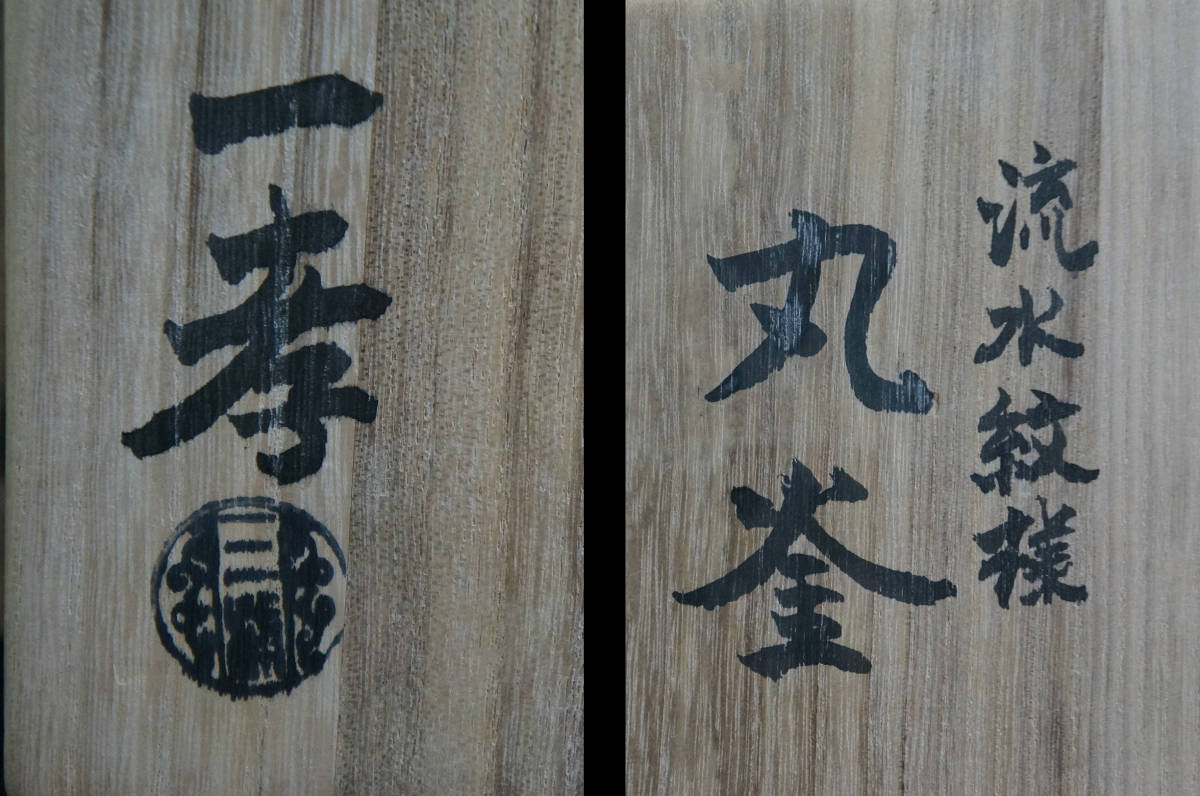 一孝
流水紋様
丸釜